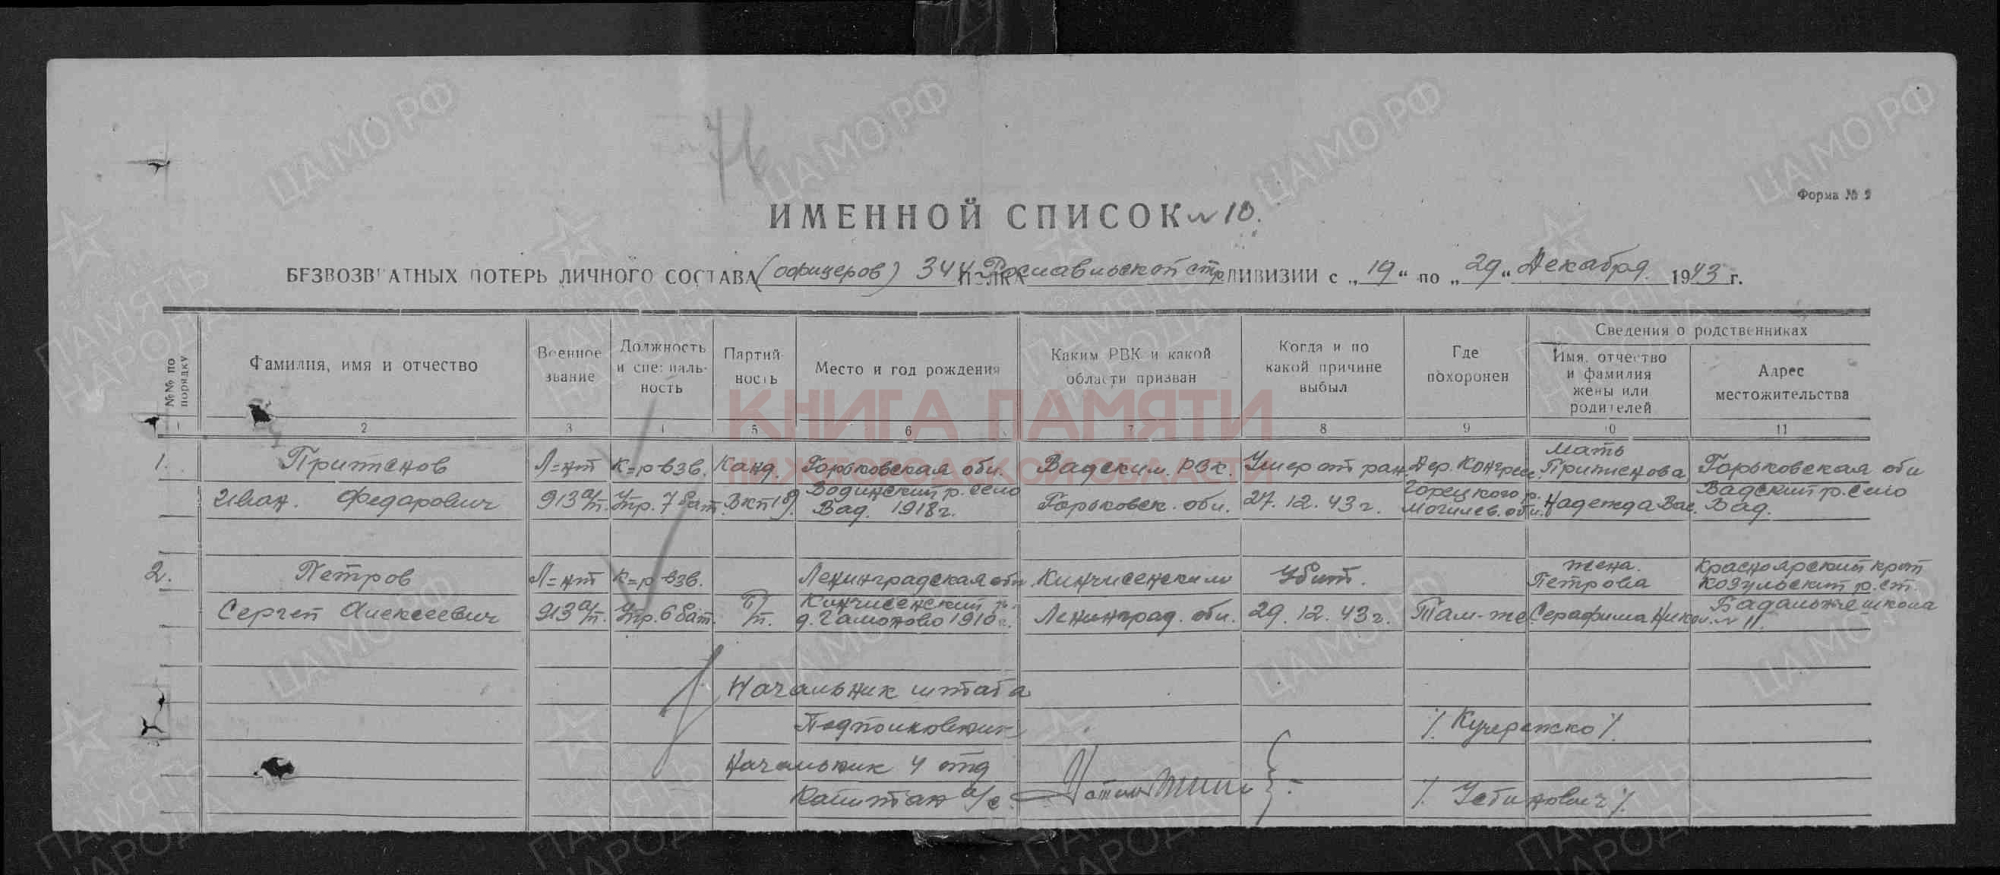 76
Форма № 2
ИМЕННОЙ СПИСОК № 10.
БЕЗВОЗВРАТНЫХ ПОТЕРЬ ЛИЧНОГО СОСТАВА (офицеров) 344 ПОЛКА Рославльской стр. ДИВИЗИИ с „19“ по „29“ Декабря 1943 г.
№№ по порядку
Фамилия, имя и отчество
Военное звание
Должность и специальность
Партийность
Место и год рождения
Каким РВК и какой области призван
Когда и по какой причине выбыл
Где похоронен
Сведения о родственниках
Имя, отчество и фамилия жены или родителей
Адрес местожительства
1 2 3 4 5 6 7 8 9 10 11
Мать
1. Притенов Л=нт К=р взв. Канд. Горьковская обл. Вадским РВК. Умер от ран Дер. Притенова Горьковская обл
Иван Федорович 913 а/п. Упр. 7 бат. ВКП(б) Водинский р. село Вад. 1918 г. Горьковск. обл. 27.12.43 г. Горецкого р. Могилев. обл. Надежда Вас. Вадский р. село Вад.
жена. Красноярский край
2. Петров Л=нт К=р взв. Ленинградская обл Кингисепским Убит. Петрова Козульский р. ст.
Сергей Алексеевич 913 а/п. Упр. 6 бат. Б/п. Кингисепский р. 1910 г. Ленинград. обл. 29.12.43 г. Там-же Серафима Никол. школа № 11.
Начальник штаба
Подполковник /. Кучеренко /.
Начальник 4 отд
Капитан а/с. /. Устинович /.
КНИГА ПАМЯТИ
НИЖЕГОРОДСКОЙ ОБЛАСТИ
ЦАМО РФ
ПАМЯТЬ НАРОДА